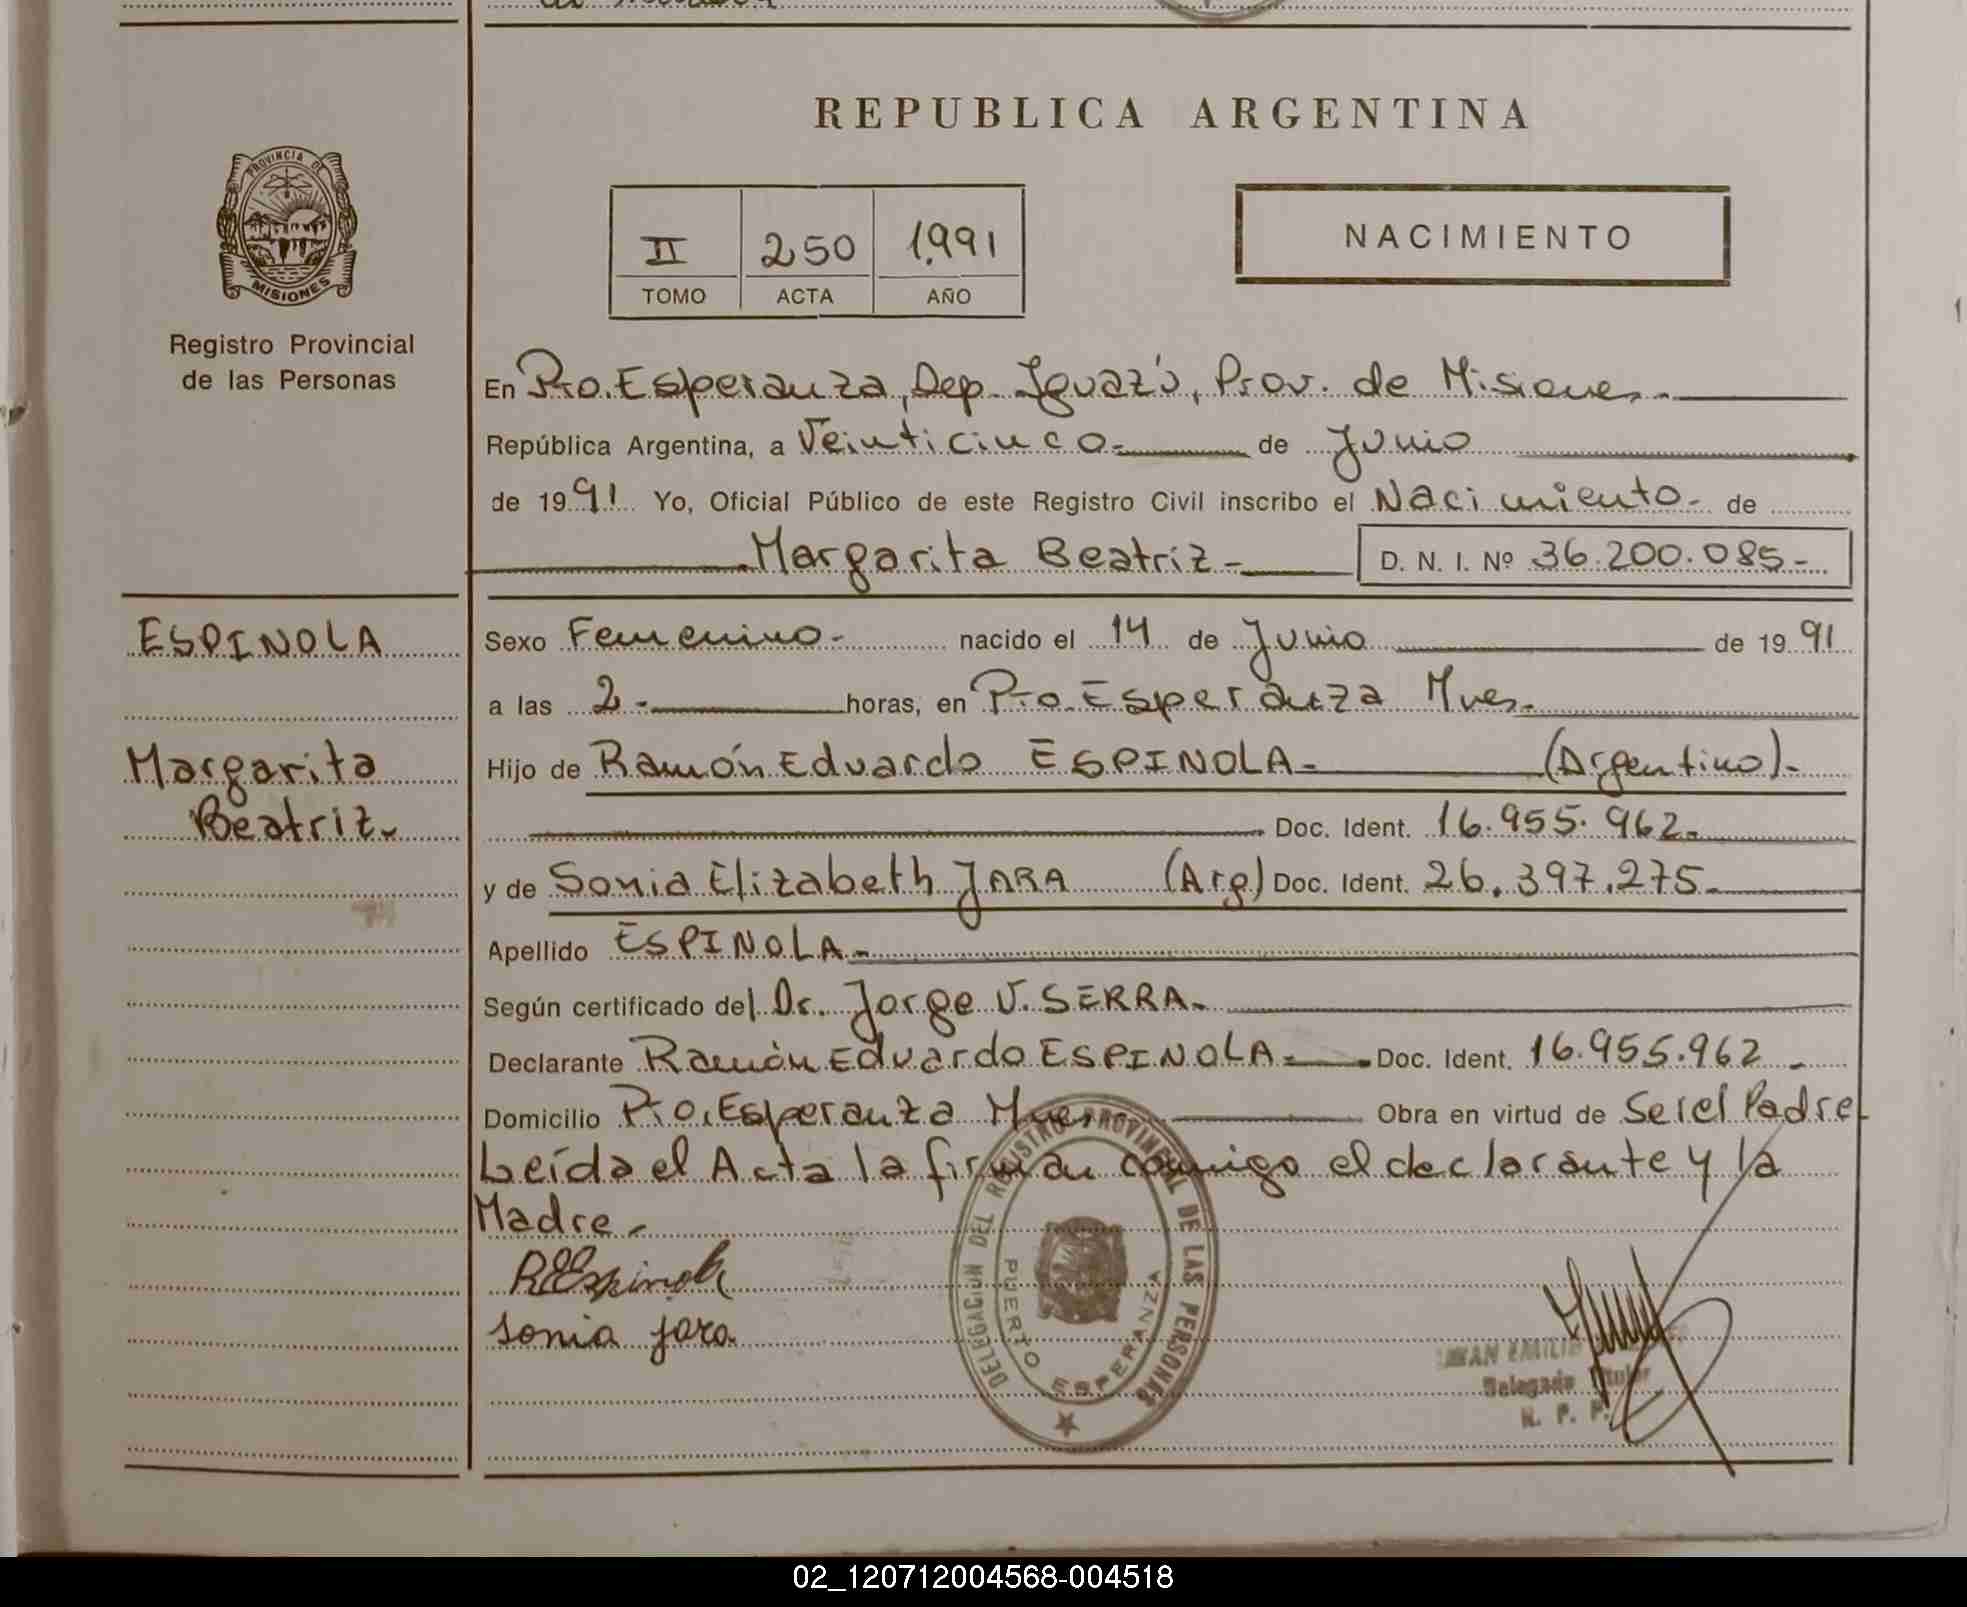 REPUBLICA ARGENTINA
PROVINCIA DE
MISIONES
Registro Provincial
de las Personas
II 250 1991
TOMO ACTA AÑO
NACIMIENTO
En Pto. Esperanza, Dep. Iguazú, Prov. de Misiones.-
República Argentina, a Veinticinco.- de Junio
de 1991 Yo, Oficial Público de este Registro Civil inscribo el Nacimiento- de
Margarita Beatriz- D. N. I. Nº 36.200.085-
ESPINOLA
Margarita
Beatriz.
Sexo Femenino- nacido el 14 de Junio de 1991
a las 2- horas, en Pto. Esperanza Mnes.
Hijo de Ramón Eduardo ESPINOLA- (Argentino)-
Doc. Ident. 16.955.962-
y de Sonia Elizabeth JARA (Arg) Doc. Ident. 26.397.275-
Apellido ESPINOLA-
Según certificado del Dr. Jorge V. SERRA-
Declarante Ramón Eduardo ESPINOLA- Doc. Ident. 16.955.962-
Domicilio Pto. Esperanza Mnes Obra en virtud de Ser el Padre
Leída el Acta la firman conmigo el declarante y la
Madre-
REEspinola
Sonia Jara
DELEGACION DEL REGISTRO PROVINCIAL DE LAS PERSONAS
PUERTO ESPERANZA
JUAN EMILIO
Delegado Titular
R. P. P.
02_120712004568-004518